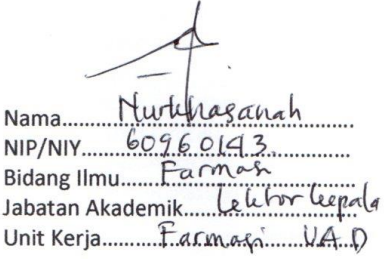 Nama...........Nurkhasanah...........
NIP/NIY.......60960143...........
Bidang Ilmu......Farmasi...........
Jabatan Akademik......Lektor Kepala
Unit Kerja...........Farmasi UAD